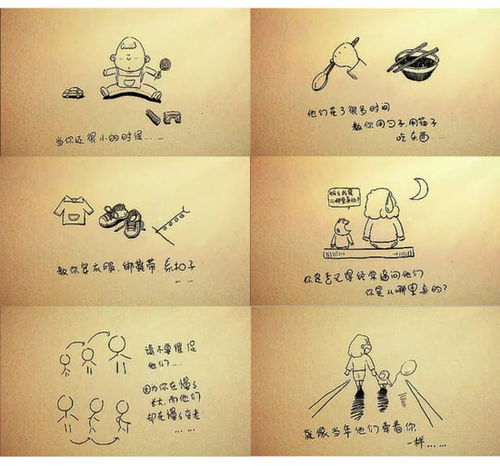 当你还很小的时候……
他们花了很多时间
教你用勺子、用筷子
吃东西
教你穿衣服、绑鞋带、系扣子
……
妈妈我是
从哪里来的?
你是否记得经常逼问他们
你是从哪里来的?
请不要催促
他们……
因为你在慢慢
长大,而他们
却在慢慢变老
……
就像当年他们牵着你
一样……